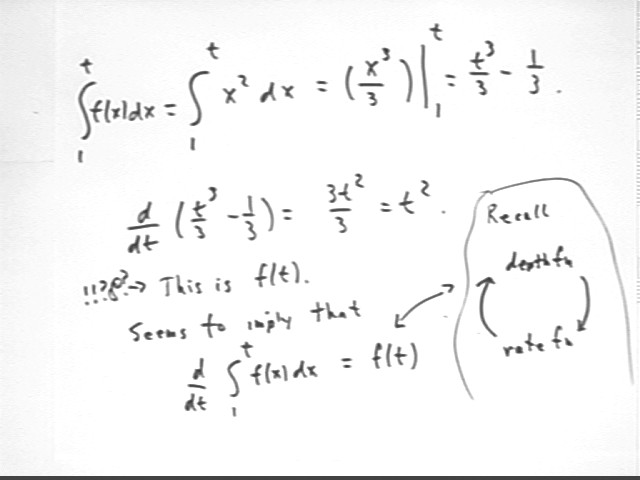 ∫₁ᵗ f(x)dx = ∫₁ᵗ x² dx = (x³/3)|₁ᵗ = t³/3 - 1/3.
d/dt (t³/3 - 1/3) = 3t²/3 = t².
!!?? → This is f(t).
Seems to imply that
d/dt ∫₁ᵗ f(x)dx = f(t)
Recall
depth fn
rate fn